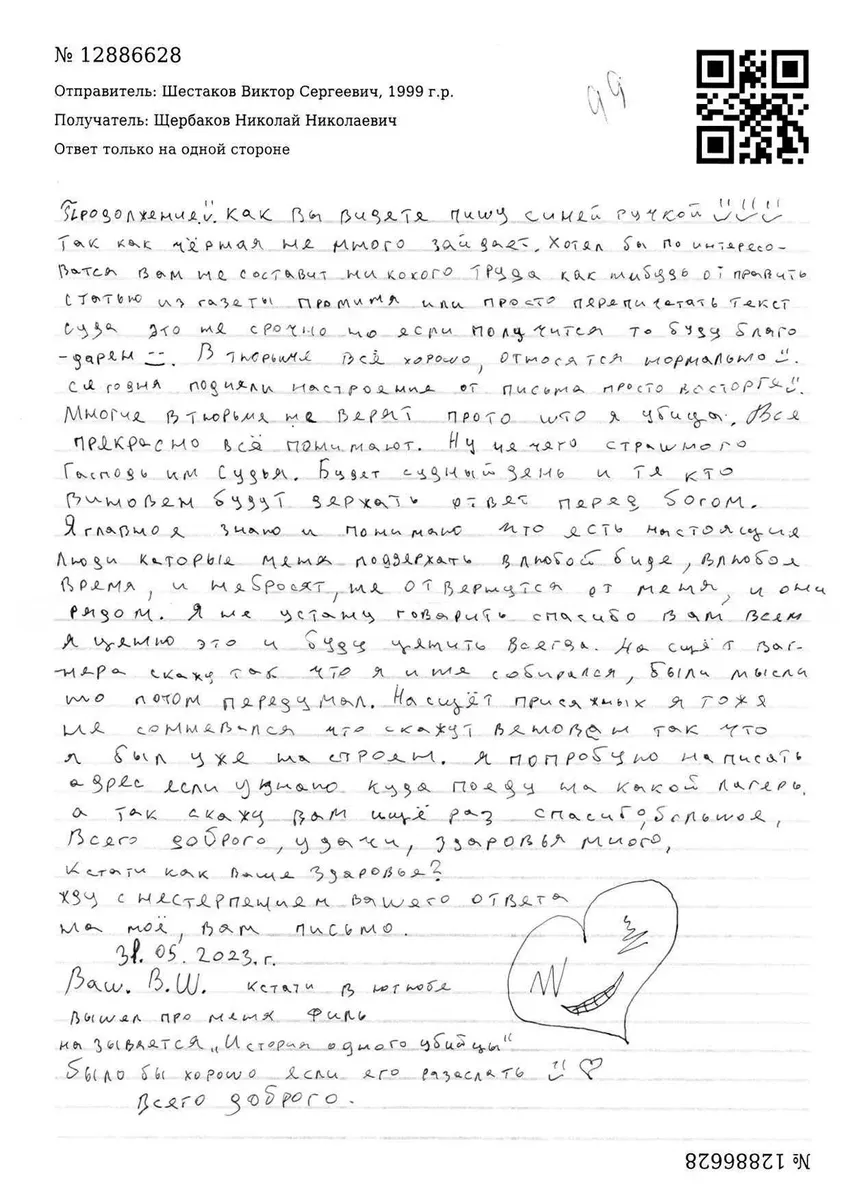 № 12886628
Отправитель: Шестаков Виктор Сергеевич, 1999 г.р.
Получатель: Щербаков Николай Николаевич
Ответ только на одной стороне
99
Продолжение. Как вы видете пишу синей ручкой
так как чёрная не много заидает. Хотел бы по интересо-
ватся вам не составит ни кокого труда как нибудь от править
статью из газеты про миня или просто перепичетать текст
суда это не срочно но если получится то буду благо
-дарен. В тюрьме всё хорошо, относятся нормально.
сегодня подняли настроение от письма просто восторге.
Многие в тюрьме не верят прото што я убица. Все
прекрасно всё понимают. Ну не чего страшного
Гасподь им Судья. Будет судный день и те кто
виновен будут держать ответ перед богом.
Я главное знаю и понимаю что есть настоящие
люди каторые меня поддержать в любой биде, в любое
время, и небросят, не отвернутся от меня, и они
рядом. Я не устану говарить спасибо вам всем
я ценю это и буду ценить всегда. На сщёт ваг-
нера скажу так что я и не собирался, были мысли
но потом передумал. На сщёт присяжных я тоже
не сомневался что скажут веновен так что
я был уже на строен. Я попробую написать
адрес если узнаю куда поеду на какой лагерь.
а так скажу вам ищё раз спасибо, большое,
Всего доброго, удачи, здоровья много,
кстати как ваше здоровье?
жду с нестерпением вашего ответа
на моё, вам письмо.
31.05.2023.г.
Ваш. В.Ш. кстати в ютюбе
вышел про меня филь
называется „История одного убийцы"
было бы хорошо если его разаслать
всего доброго.
№ 12886628